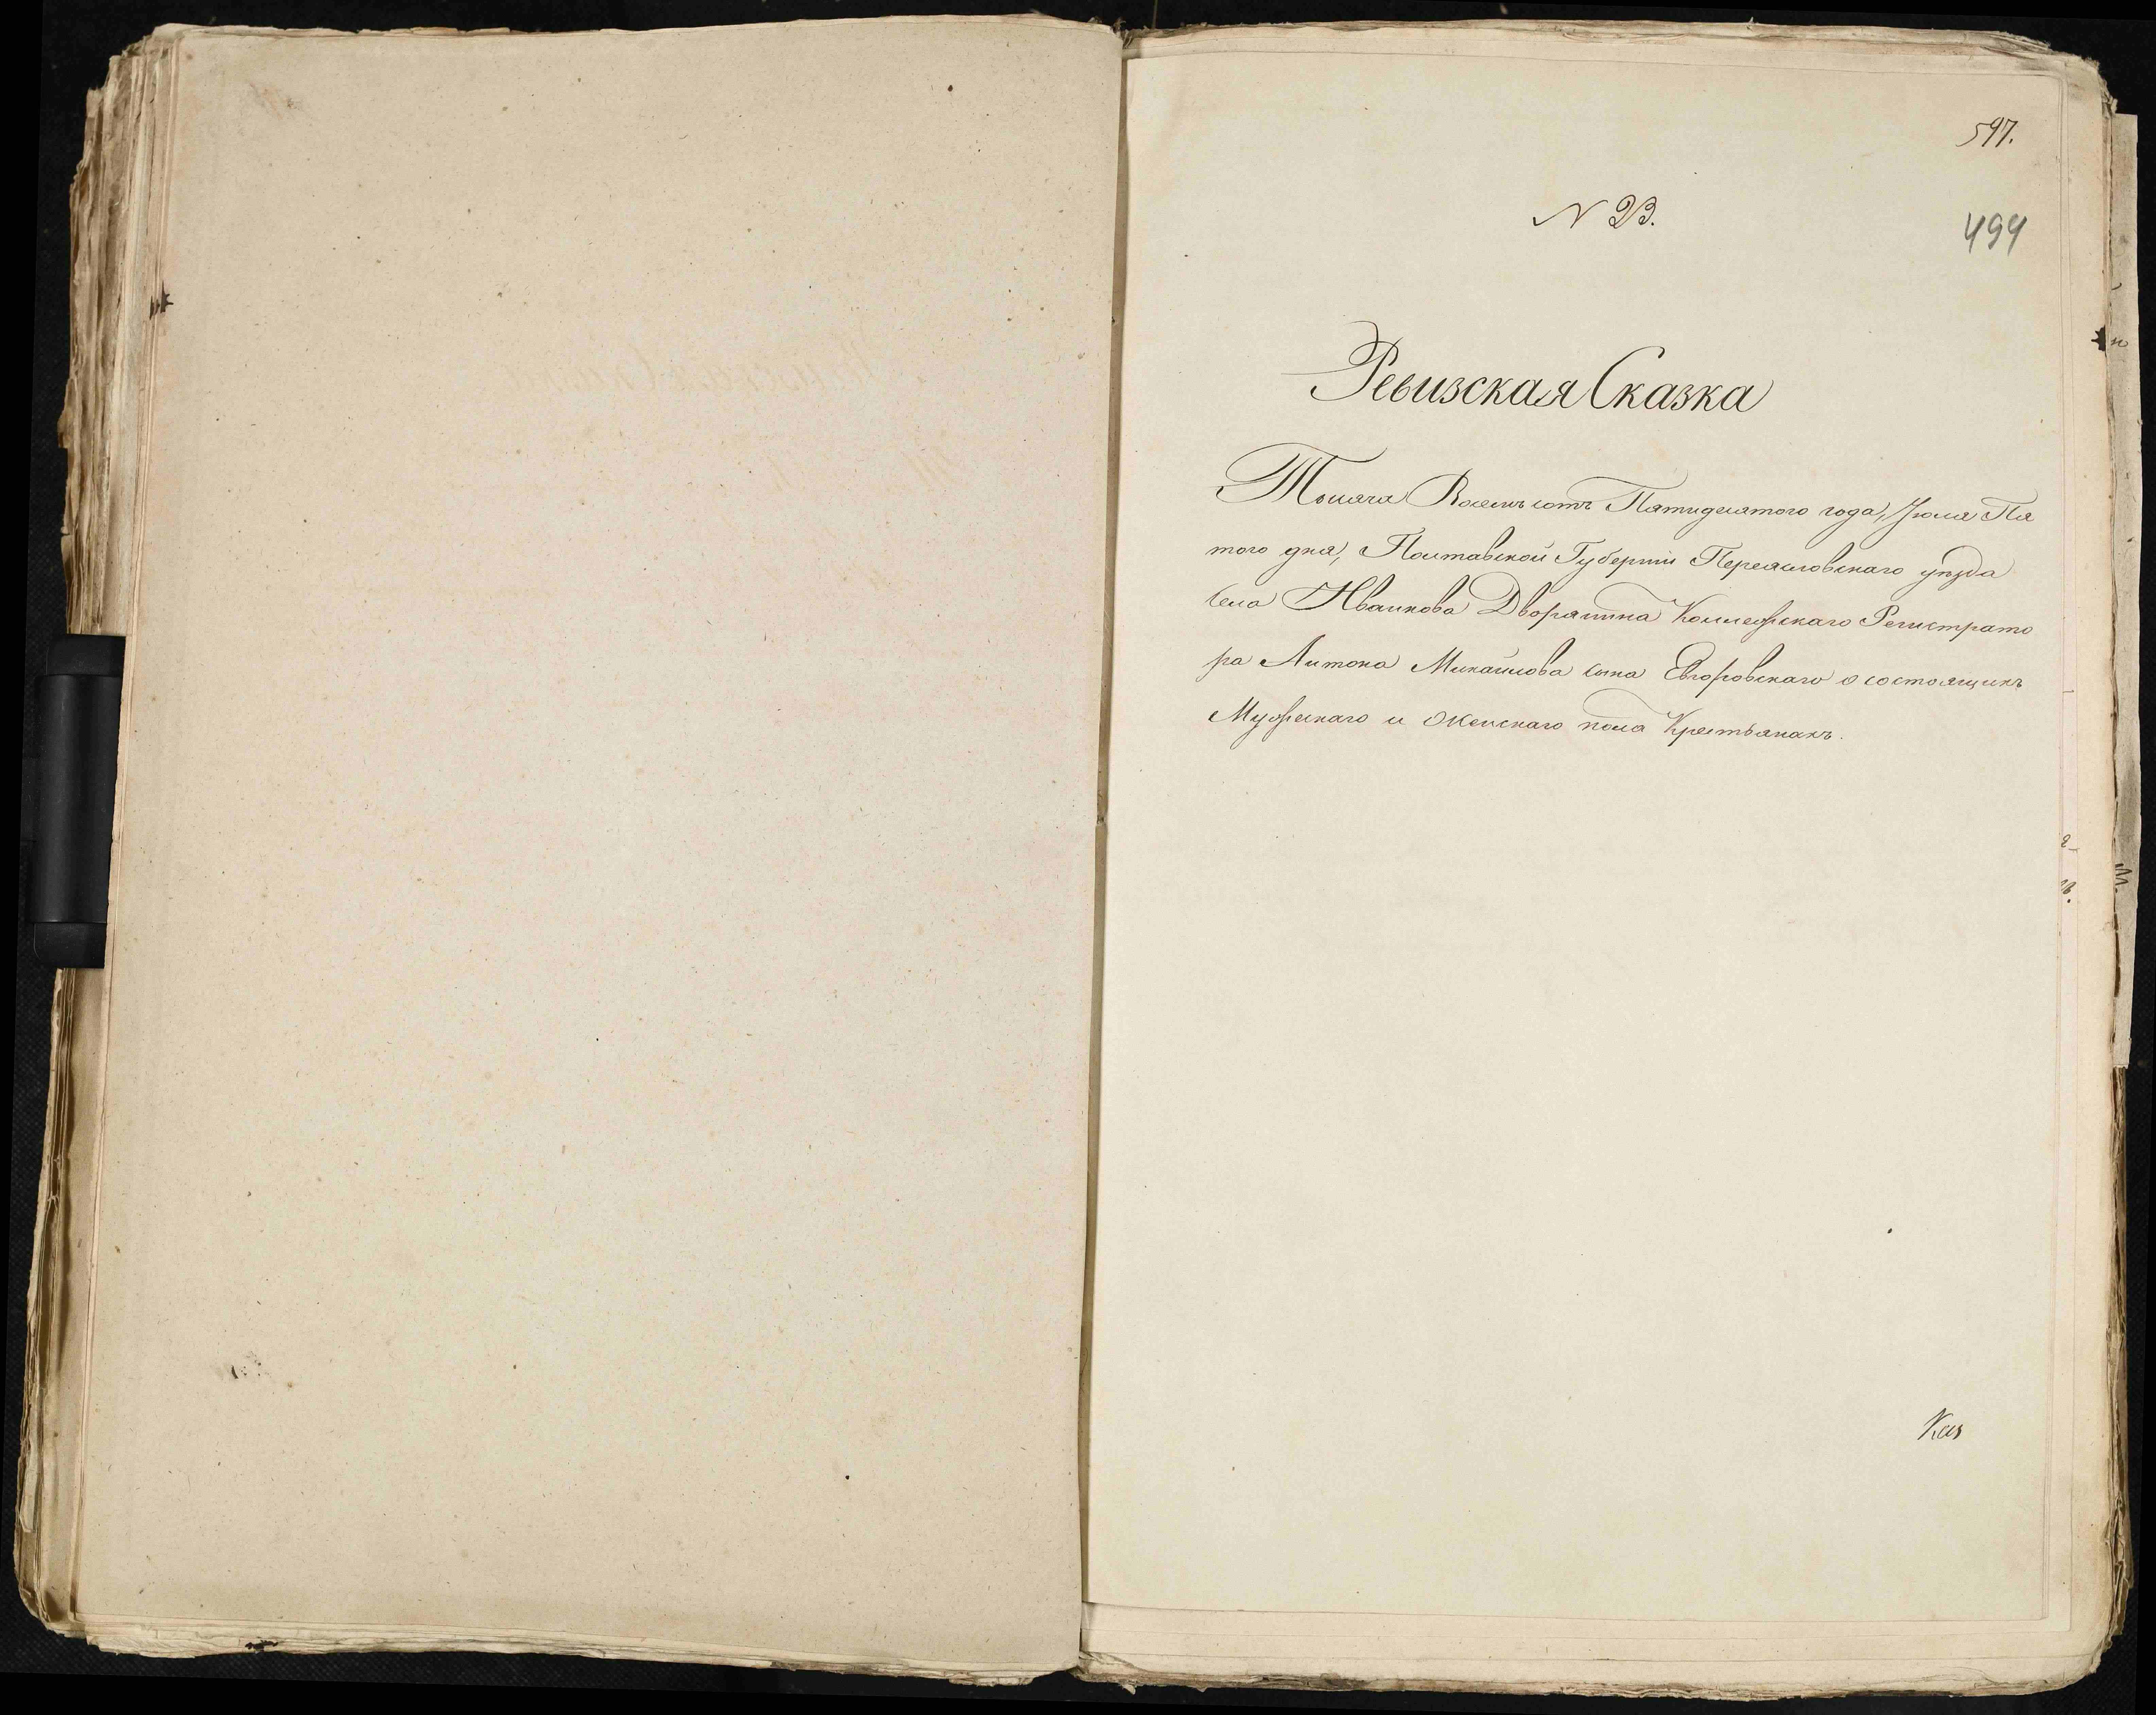 597.
N 23.
494
Ревизская Сказка
Тысяча Восемьсотъ Пятидесятого года, Іюля Пя
того дня, Полтавской Губерніи Переясловскаго уѣзда
села Иванкова Дворянина Коллежскаго Регистрато
ра Антона Михайлова сына Егоровскаго о состоящихъ
Мужескаго и Женскаго пола Крестьянахъ.